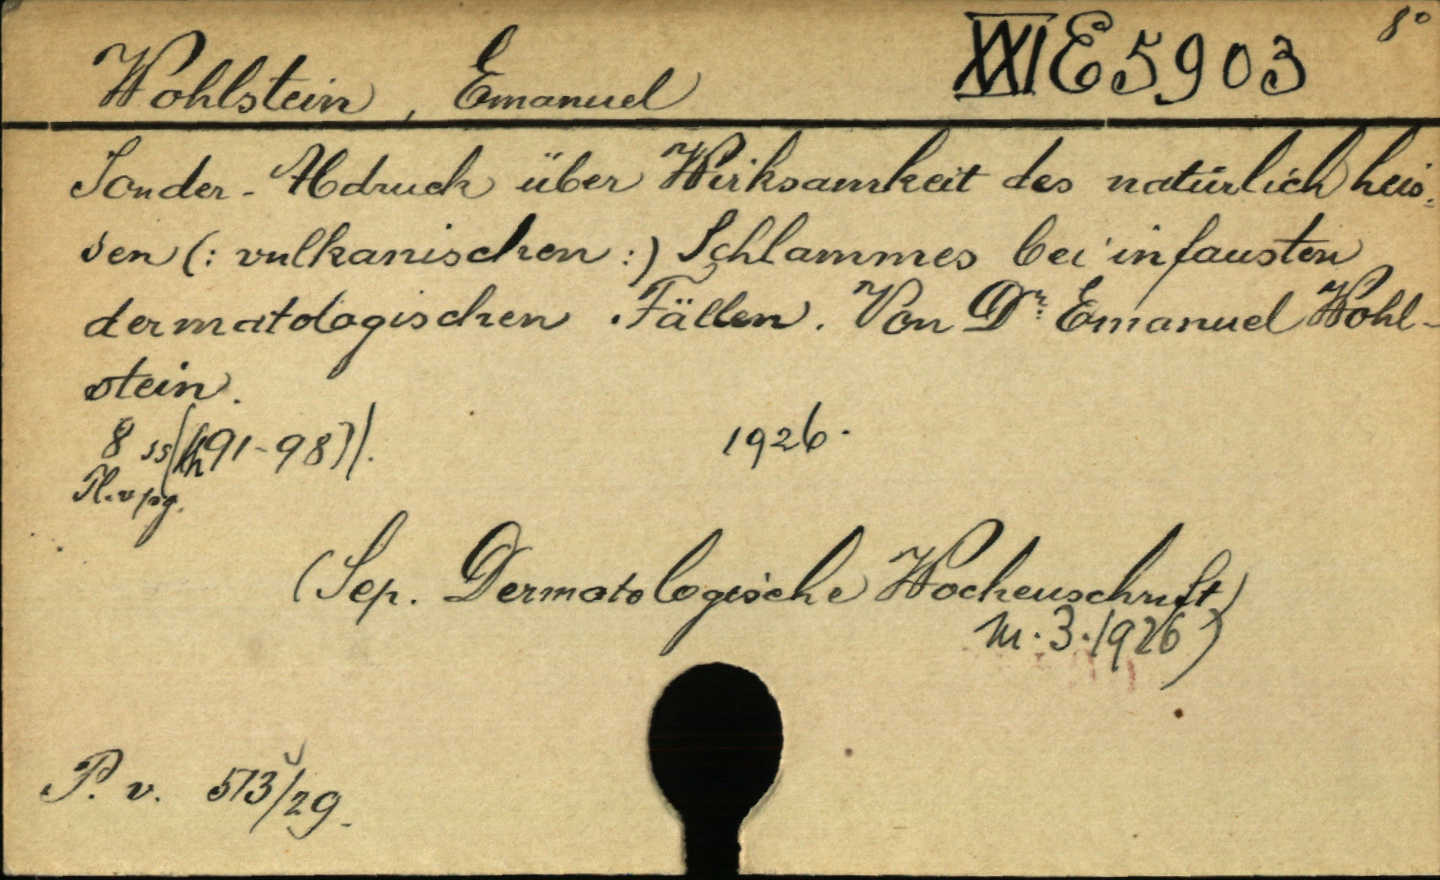 Wohlstein, Emanuel XXI E 5903 8°
Sonder-Abdruck über Wirksamkeit des natürlich heis-
sen (: vulkanischen :) Schlammes bei infausten
dermatologischen Fällen. Von Dr. Emanuel Wohl-
stein.
8 ss (91-98). 1926.
(Sep. Dermatologische Wochenschrift)
3. 1926)
P. v. 573/29.